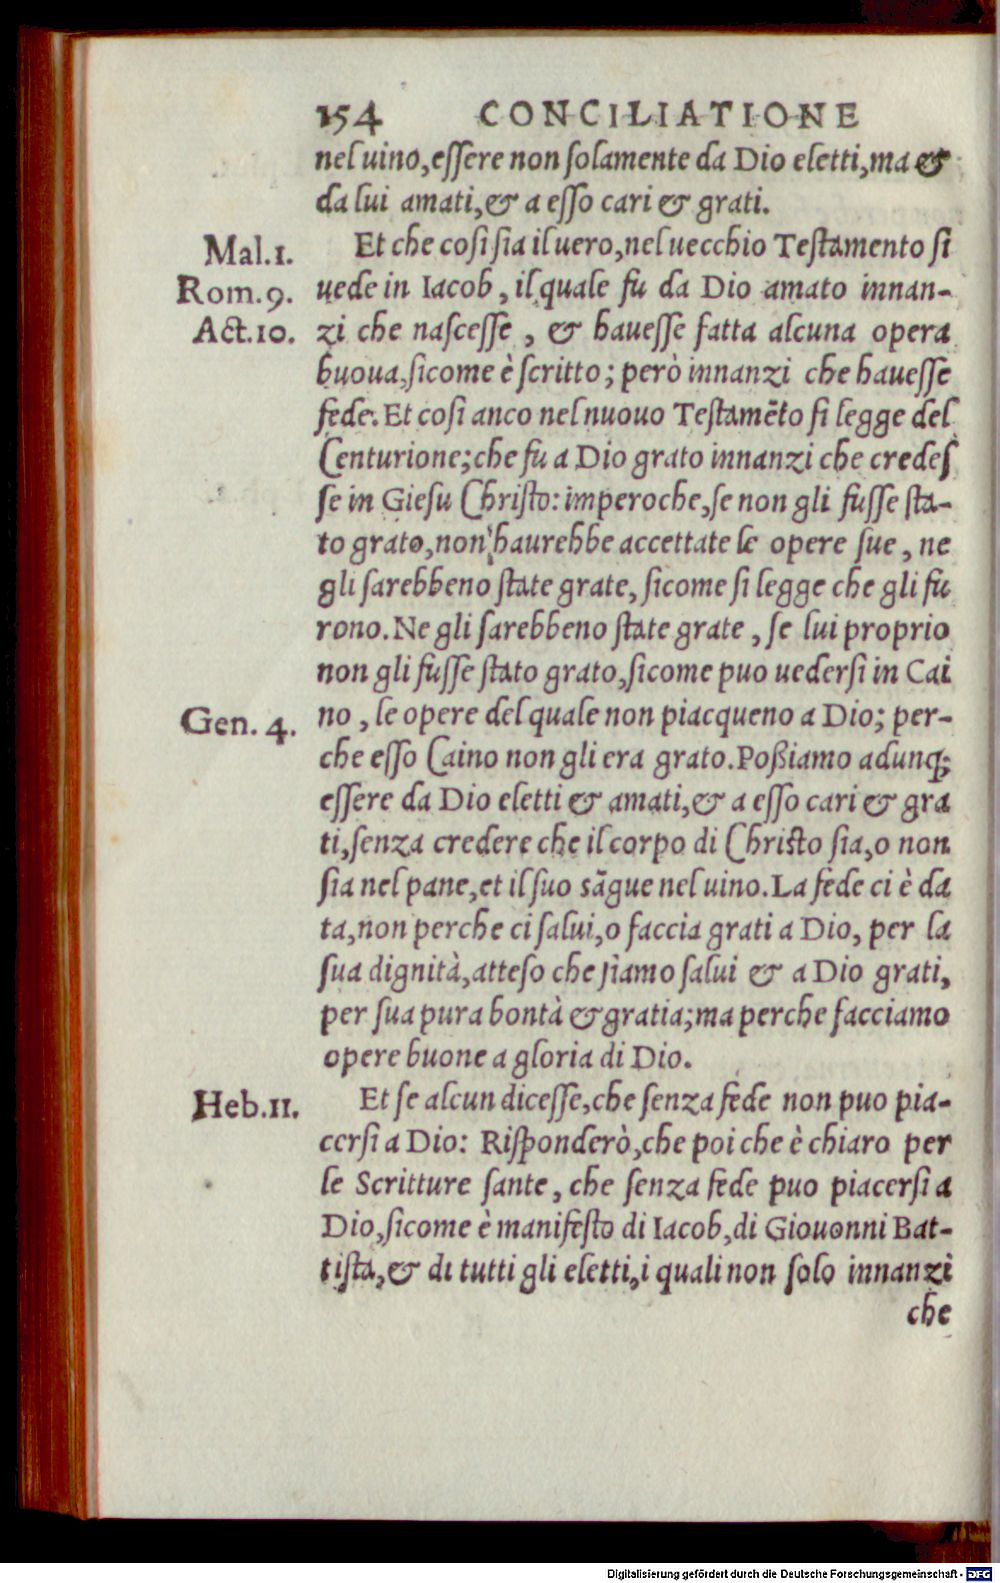 154 CONCILIATIONE
nel uino, essere non solamente da Dio eletti, ma &
da lui amati, & a esso cari & grati.
Mal.1.
Et che cosi sia il uero, nel uecchio Testamento si
Rom.9.
uede in Iacob, il quale fu da Dio amato innan-
Act.10.
zi che nascesse, & hauesse fatta alcuna opera
buoua, sicome è scritto; però innanzi che hauesse
fede. Et cosi anco nel nuouo Testamẽto si legge del
Centurione; che fu a Dio grato innanzi che credes
se in Giesu Christo: imperoche, se non gli fusse sta-
to grato, non haurebbe accettate le opere sue, ne
gli sarebbeno state grate, sicome si legge che gli fu
rono. Ne gli sarebbeno state grate, se lui proprio
non gli fusse stato grato, sicome puo uedersi in Cai
Gen. 4.
no, le opere del quale non piacqueno a Dio; per-
che esso Caino non gli era grato. Poßiamo adunq;
essere da Dio eletti & amati, & a esso cari & gra
ti, senza credere che il corpo di Christo sia, o non
sia nel pane, et il suo sãgue nel uino. La fede ci è da
ta, non perche ci salui, o faccia grati a Dio, per la
sua dignità, atteso che siamo salui & a Dio grati,
per sua pura bontà & gratia; ma perche facciamo
opere buone a gloria di Dio.
Heb.11.
Et se alcun dicesse, che senza fede non puo pia-
cersi a Dio: Risponderò, che poi che è chiaro per
le Scritture sante, che senza fede puo piacersi a
Dio, sicome è manifesto di Iacob, di Giouonni Bat-
tista, & di tutti gli eletti, i quali non solo innanzi
che
Digitalisierung gefördert durch die Deutsche Forschungsgemeinschaft - DFG